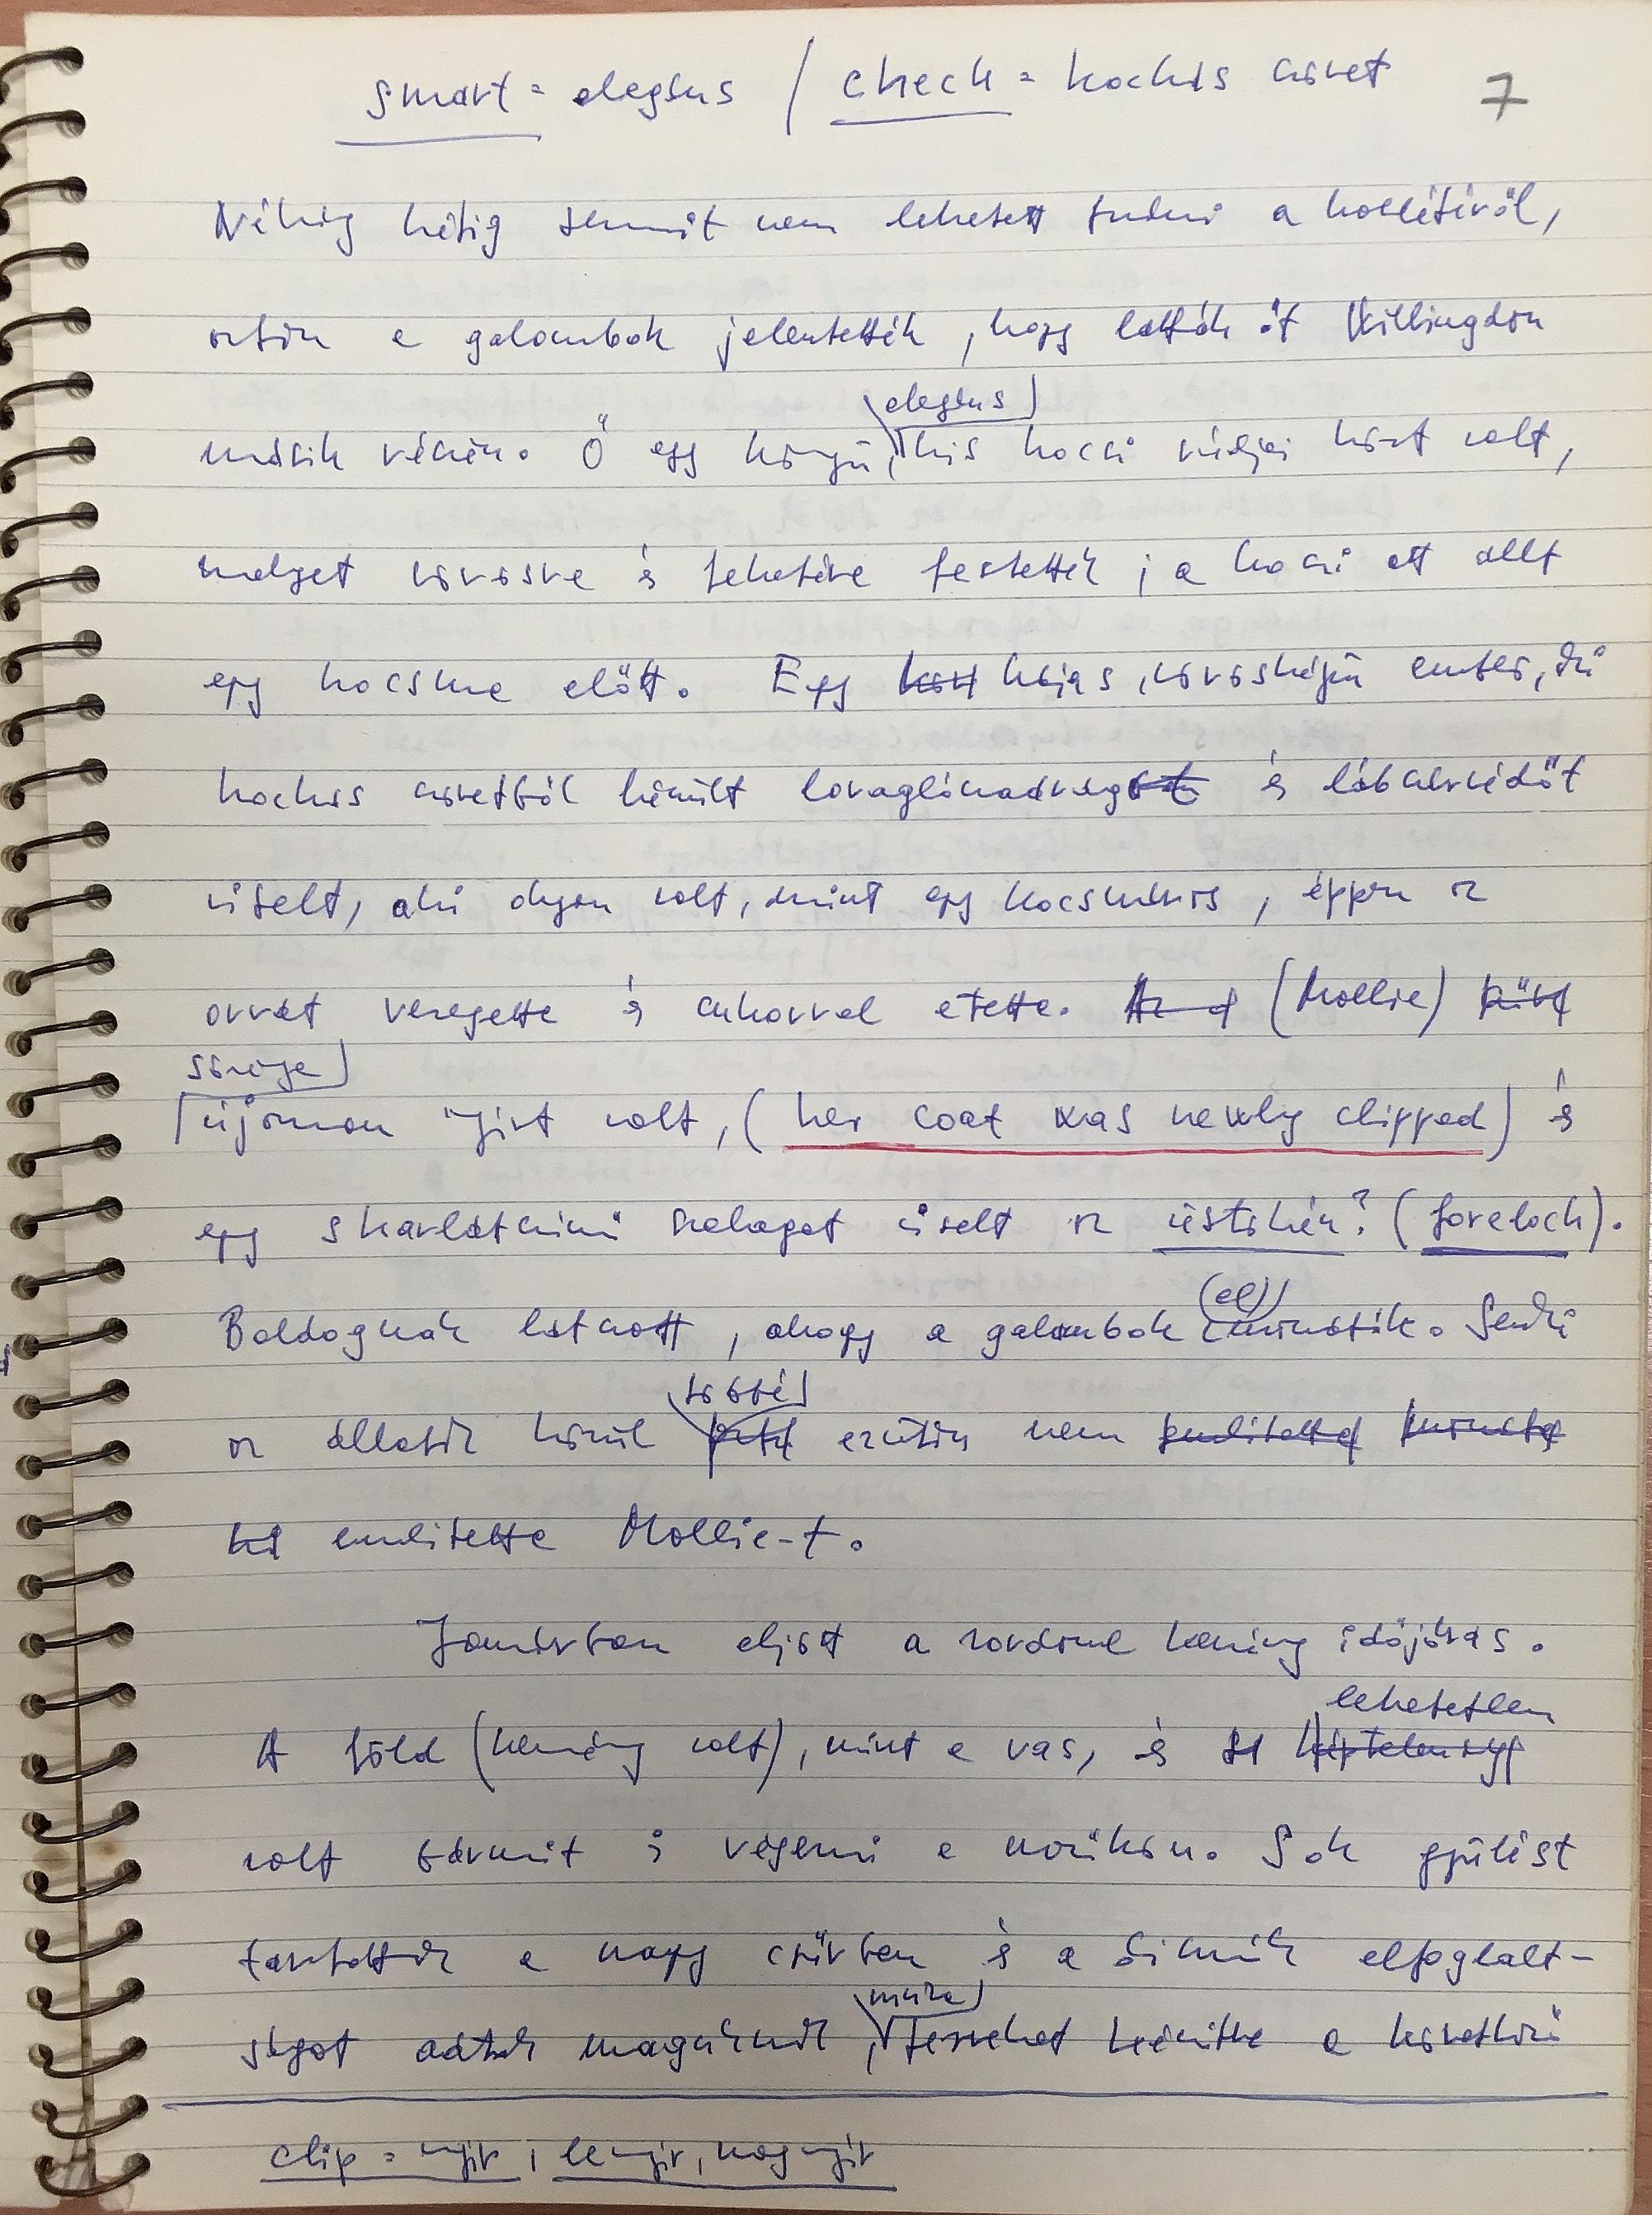 smart = elegáns / check = kockás szövet 7
Néhány hétig semmit nem lehetett tudni a hollétéről,
aztán a galambok jelentették, hogy látták őt Willingdon
elegáns
másik végén. Ő egy könnyű, kis kocsi rúdjai közt volt,
melyet vörösre és feketére festettek; a kocsi ott állt
egy kocsma előtt. Egy hájas, vörösképű ember, ki
kockás szövetből készült lovaglónadrágot és lábszárvédőt
viselt, aki olyan volt, mint egy kocsmáros, éppen az
orrát veregette és cukorral etette. Az (Mollie)
szőrzete
újonnan nyírt volt, (her coat was newly clipped) és
egy skarlátszínű szalagot viselt az üstökén? (forelock).
(el)
Boldognak látszott, ahogy a galambok mondták. Senki
többé
az állatok közül ezután nem említette
említette Mollie-t.
Januárban eljött a zordonul kemény időjárás.
lehetetlen
A föld (kemény volt), mint a vas, és képtelenség
volt bármit is végezni a mezőkön. Sok gyűlést
tartottak a nagy csűrben és a disznók elfoglalt-
munka
ságot adtak maguknak, terveket készítve a következő
clip = nyír; lenyír, megnyír